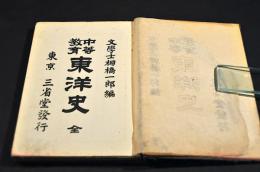 文學士棚橋一郎編
中等教育 東洋史 全
東京 三省堂發行